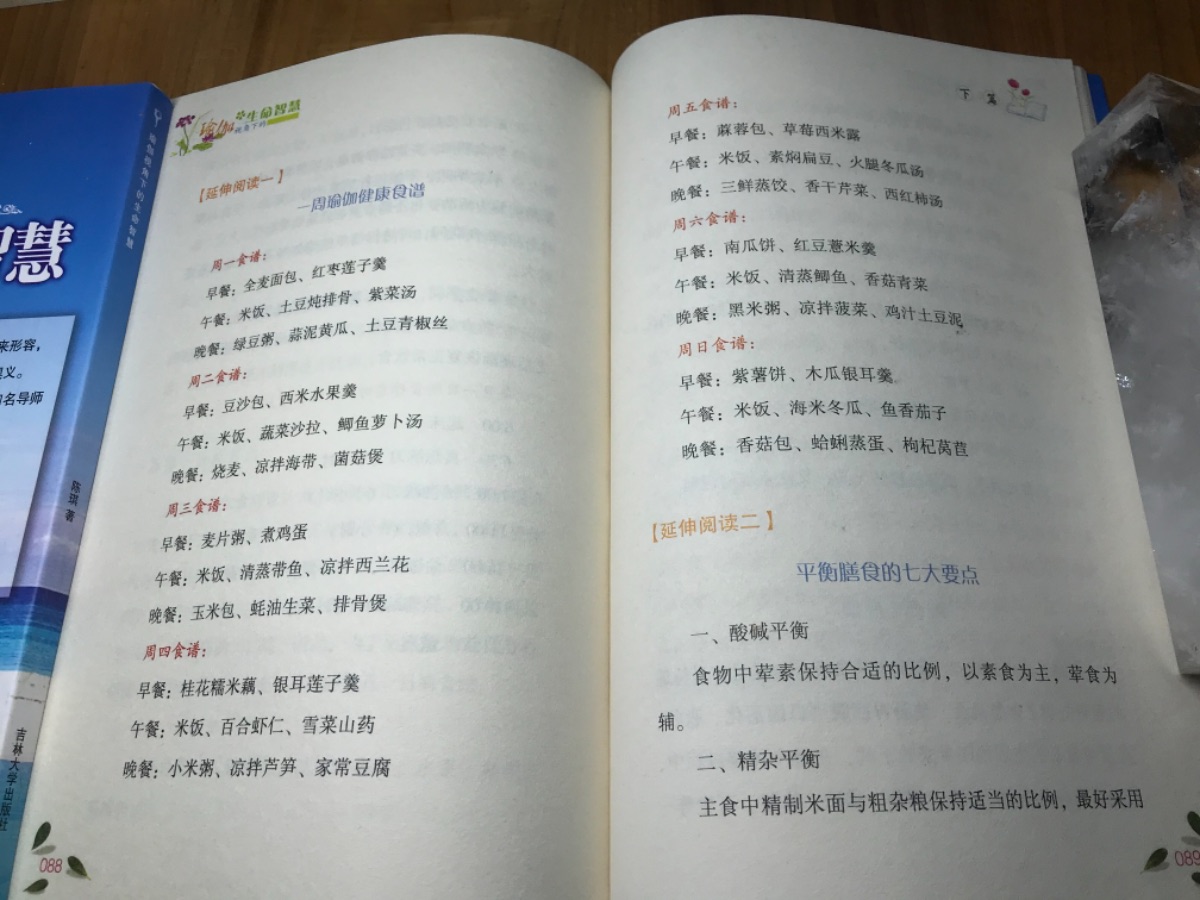 智慧
来形容，
义。
名导师
瑜伽视角下的生命智慧
陈琪 著
吉林大学出版社
瑜伽视角下的生命智慧
【延伸阅读一】
一周瑜伽健康食谱
周一食谱：
早餐：全麦面包、红枣莲子羹
午餐：米饭、土豆炖排骨、紫菜汤
晚餐：绿豆粥、蒜泥黄瓜、土豆青椒丝
周二食谱：
早餐：豆沙包、西米水果羹
午餐：米饭、蔬菜沙拉、鲫鱼萝卜汤
晚餐：烧麦、凉拌海带、菌菇煲
周三食谱：
早餐：麦片粥、煮鸡蛋
午餐：米饭、清蒸带鱼、凉拌西兰花
晚餐：玉米包、蚝油生菜、排骨煲
周四食谱：
早餐：桂花糯米藕、银耳莲子羹
午餐：米饭、百合虾仁、雪菜山药
晚餐：小米粥、凉拌芦笋、家常豆腐
088
下 篇
周五食谱：
早餐：蔴蓉包、草莓西米露
午餐：米饭、素焖扁豆、火腿冬瓜汤
晚餐：三鲜蒸饺、香干芹菜、西红柿汤
周六食谱：
早餐：南瓜饼、红豆薏米羹
午餐：米饭、清蒸鲫鱼、香菇青菜
晚餐：黑米粥、凉拌菠菜、鸡汁土豆泥
周日食谱：
早餐：紫薯饼、木瓜银耳羹
午餐：米饭、海米冬瓜、鱼香茄子
晚餐：香菇包、蛤蜊蒸蛋、枸杞莴苣
【延伸阅读二】
平衡膳食的七大要点
一、酸碱平衡
食物中荤素保持合适的比例，以素食为主，荤食为
辅。
二、精杂平衡
主食中精制米面与粗杂粮保持适当的比例，最好采用
089